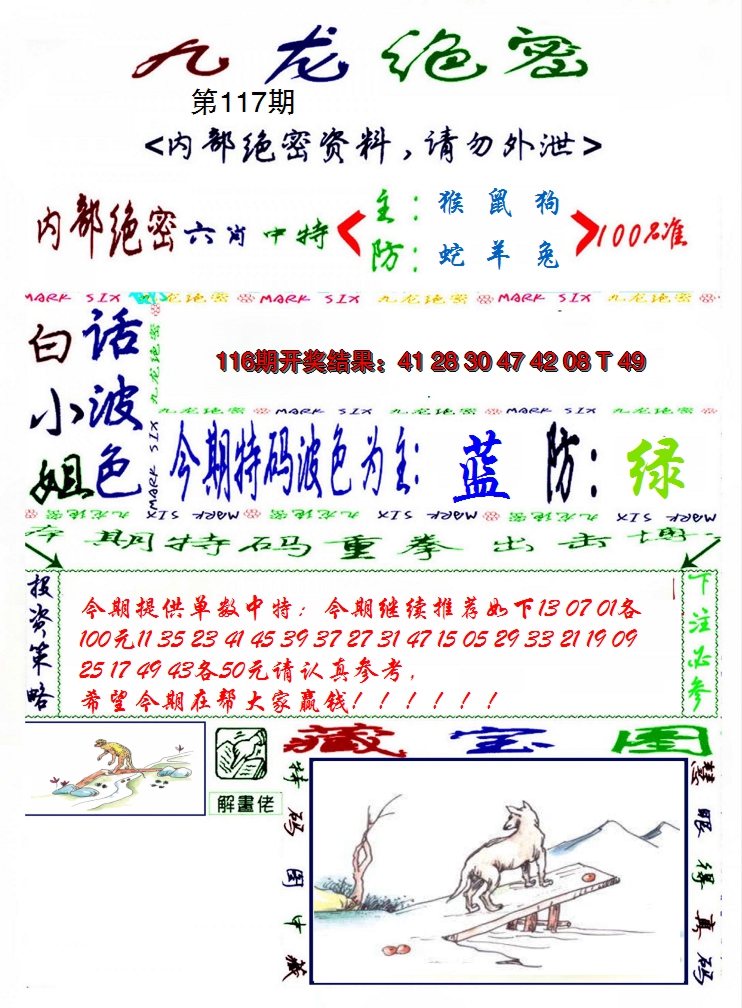 九龙绝密
第117期
<内部绝密资料,请勿外泄>
内部绝密六肖中特
主：猴 鼠 狗
防：蛇 羊 兔
100%准
MARK SIX 九龙绝密 MARK SIX 九龙绝密 MARK SIX 九龙绝密
白小姐
话波色
九龙绝密 MARK SIX
116期开奖结果：41 28 30 47 42 08 T 49
九龙绝密 MARK SIX 九龙绝密 MARK SIX 九龙绝密
今期特码波色为主:蓝 防：绿
九龙绝密 MARK SIX 九龙绝密 MARK SIX 九龙绝密 MARK SIX
本期特码重拳出击博
投资策略
今期提供单数中特；今期继续推荐如下13 07 01各
100元11 35 23 41 45 39 37 27 31 47 15 05 29 33 21 19 09
25 17 49 43各50元请认真参考,
希望今期在帮大家赢钱！！！！！！
下注必参
藏宝图
解畫佬
特码图中藏
慧眼得真码